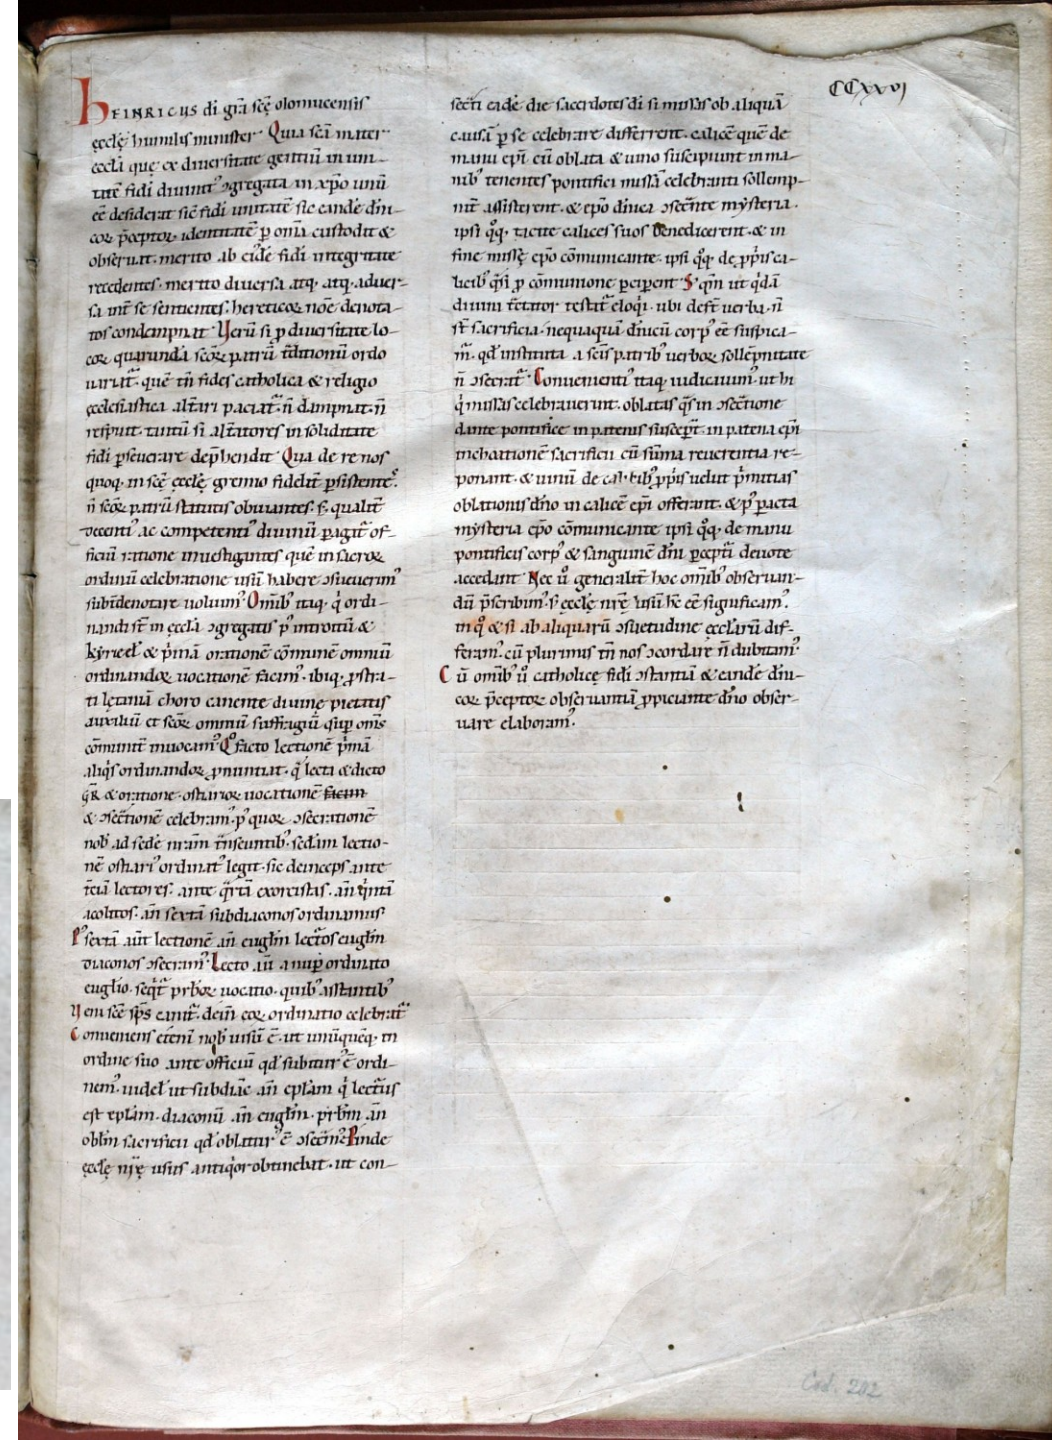 CCxxvj
hEINRICUS di gr̄a scę̄ olomucensis
ęcclę humilis minister. Quia sc̄a mater
ęccl̄a quę ex diuersitate gentiū in uni-
tatē fidei diuinit᾽ ↄgregata in xp̄o unū
eē desiderat sic̄ fidi unitatē sic eandē dn̄i-
coꝝ p̄ceptoꝝ identitatē ꝑ om̄a custodit &
obseruat. merito ab ei᾽dē fidi integritate
recedentes. merito diuersa atq; atq; aduer-
sa int̄ se sentientes. hereticoꝝ noīe denota-
tos condempnat. Verū si ꝓ diuersitate lo-
coꝝ quarundā scōꝝ patrū t̄ditionū ordo
uariat᾽. quē tn̄ fides catholica & religio
ęcclesiastica alt̄ari paciat᾽. n̄ dampnat. n̄
respuit. tantū si alt̄atores in soliditate
fidi ꝑseuerare dep̄hendit. Qua de re nos
quoq; in scę̄ ęcclę gremio fidelit̄ ꝑsistentes.
n̄ scōꝝ patrū statutis obuiantes. s; qualit̄
decenti᾽ ac competenti᾽ diuinū ꝑagat᾽ of-
ficiū ratione inuestigantes quē in sacroꝝ
ordinū celebratione usū habere ↄsueuerim᾽
subt̄denotare uolum᾽. Om̄ib᾽ itaq; qͥ ordi-
nandi st̄ in ęccl̄a ↄgregatis p᾽ introitū &
kyriel̄ & p̄mā orationē cōmunē omniū
ordinandoꝝ uocationē facim᾽. ibiq; ꝓstra-
ti lętaniā choro canente diuine pietatis
auxiliū et scōꝝ omniū suffragiū suꝑ om̄s
cōmunit̄ inuocam᾽. Qͦ facto lectionē p̄mā
aliqͥs ordinandoꝝ ꝓnuntiat. qͣ lecta & dicto
& oratione. ostiarioꝝ uocationē facim
& ↄsec̄tionē celebram᾽. p᾽ quoꝝ ↄsecrationē
nob᾽ ad sedē nr̄am t̄nseuntib᾽. sed̄am lectio-
nē ostiari᾽ ordinat᾽ legit. sic deinceps ante
t̄ciā lectores. ante qͣrtā exorcistas. an̄ qͥntā
acolitos. an̄ sextā subdiaconos ordinamus.
P᾽ sextā aūt lectionē an̄ eugl̄m lectos eugl̄m
diaconos ↄsecram᾽. Lecto aū a nuꝑ ordinato
eugl̄io. seqͥt᾽ pr̄b̄oꝝ uocatio. quib᾽ asstantib᾽
Veni scē sp̄s canit᾽. dein̄ eoꝝ ordinatio celebrat᾽
Conueniens eteni nob᾽ uisū ē. ut unūquēq; in
ordine suo ante officiū qd̄ subitur᾽ ē ordi-
nem᾽. uidel᾽ ut subdiac̄ an̄ epl̄am qͥ lecturus
est epl̄am. diaconū an̄ eugl̄m. pr̄b̄m an̄
obl̄m sacrificii qd̄ oblatur᾽ ē ↄsec̄m᾽. Proinde
ęcclę nr̄ę usus antiqͥor obtinebat. ut con-
sec̄ti eadē die sacerdotes di si missas ob aliquā
causā ꝑ se celebrare differrent. calicē quē de
manu ep̄i cū oblata & uino suscipiunt in ma-
nib᾽ tenentes pontifici missā celebranti sollemp-
nit̄ assisterent. & ep̄o dn̄ica ↄsec̄nte mẏsteria.
ipsi qͦq; tacite calices suos benedicerent. & in
fine missę ep̄o cōmunicante. ipsi qͦq; de ꝓpͥis ca-
licib᾽ qͣsi ꝓ communione ꝑciꝑent. S; qm̄ ut qͥdā
diuini t̄ctator testat᾽ eloqͥi. ubi dest̄ uerba. n̄
st̄ sacrificia. nequaquā dn̄icū corp᾽ eē suspica-
m᾽. qd̄ instituta a sc̄is patrib᾽ uerboꝝ sollēpnitate
n̄ ↄsecrat᾽. Conuenienti᾽ itaq; iudicauim᾽. ut hi
qͥ missas celebrauerint. oblatas qͣs in ↄsec̄tione
dante pontifice in patenis suscepert᾽. in patena ep̄i
inchoationē sacrificii cū sūma reuerentia re-
ponant. & uinū de calicib᾽ ꝓpͥis uelut pͥmitias
oblationis dn̄o in calicē ep̄i offerant. & p᾽ ꝑacta
mẏsteria ep̄o cōmunicante ipsi qͦq; de manu
pontificis corp᾽ & sanguinē dn̄i ꝑcepti deuote
accedant. Nec u᾽ generalit̄ hoc om̄ib᾽ obseruan-
dū p̄scribim᾽. s; ęcclę nr̄ę usū hc̄ eē significam᾽.
in qͦ & si ab aliquarū ↄsuetudine ęccl̄arū dif-
feram᾽. cū plurimis tn̄ nos ↄcordare n̄ dubitam᾽.
Cū om̄ib᾽ u᾽ catholicę fidi ↄstantiā & eandē dn̄i-
coꝝ p̄ceptoꝝ obseruantiā ꝓpiciante dn̄o obser-
uare elaboram᾽.
Cod. 202